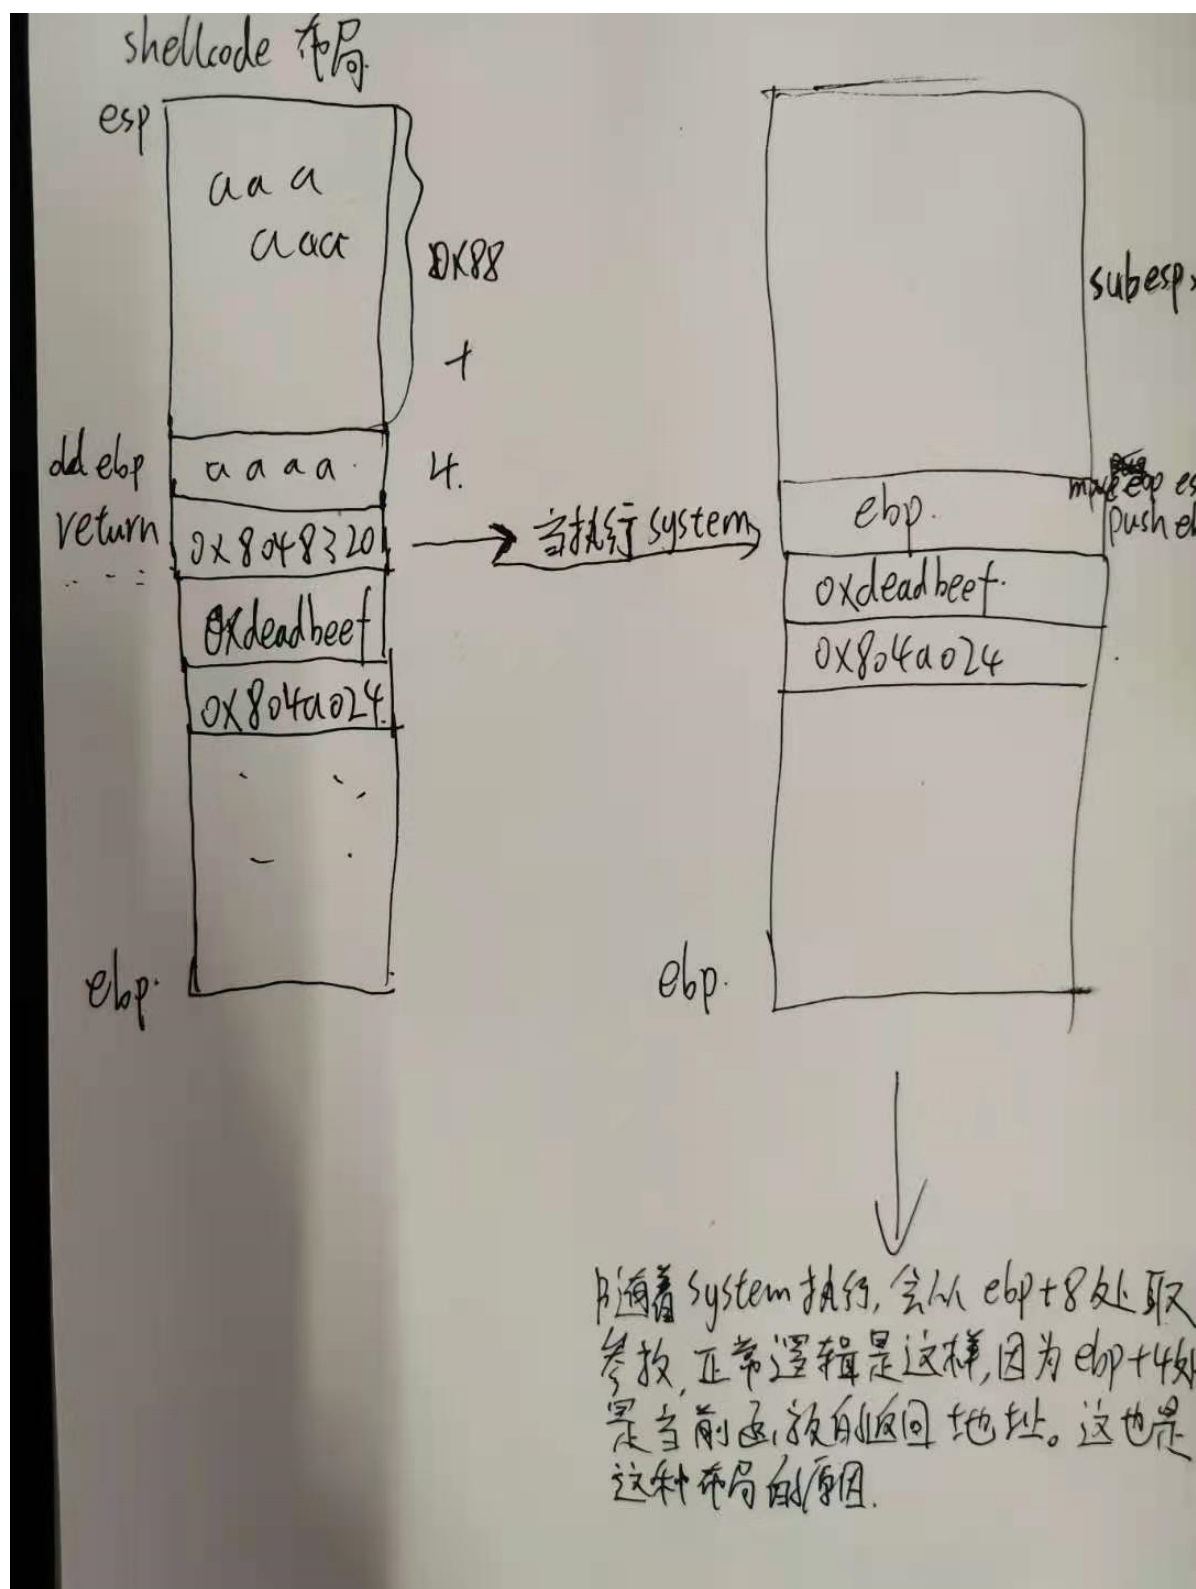 shellcode 布局
esp
aaa
aaa
0x88
+
old ebp
aaaa
4.
return
0x8048320
0xdeadbeef
0x804a024
ebp.
当执行system
subesp,
ebp.
push e
0xdeadbeef.
0x804a024
ebp.
随着system执行,会从ebp+8处取
参数,正常逻辑是这样,因为ebp+4处
是当前函数的返回地址。这也是
这种布局的原因.